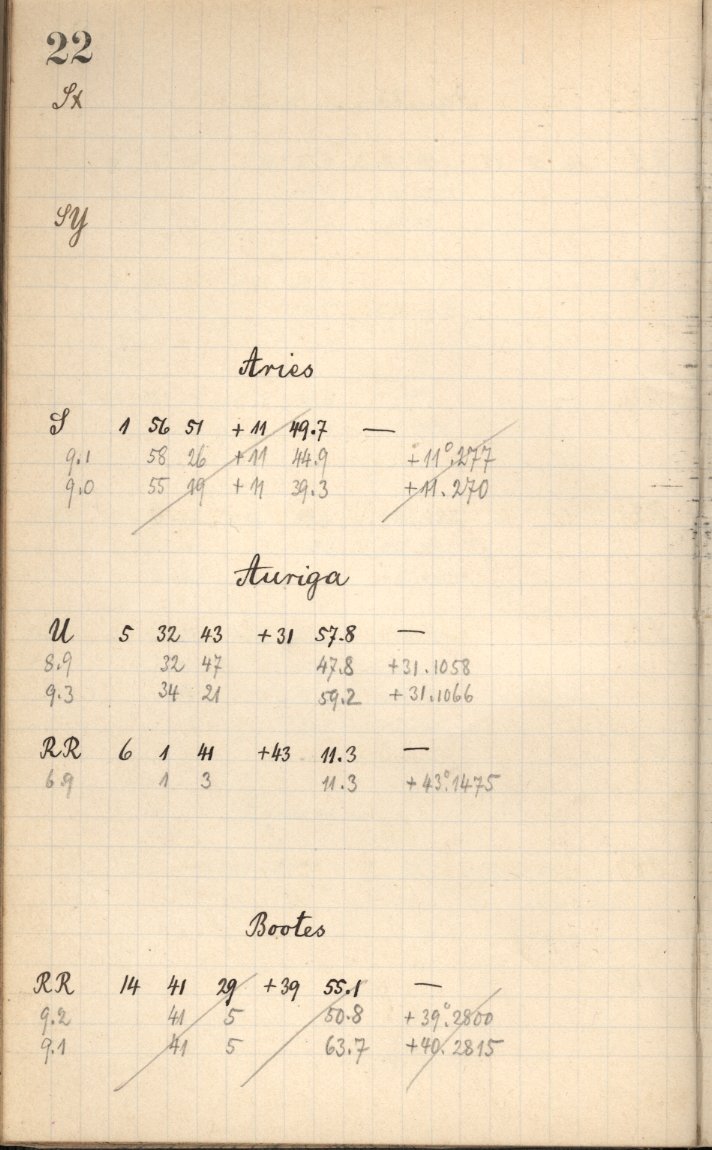 22
Sx
Sy
Aries
S 1 56 51 + 11 49.7 —
9.1 58 26 +11 44.9 +11°.277
9.0 55 19 + 11 39.3 +11.270
Auriga
U 5 32 43 +31 57.8 —
8.9 32 47 47.8 +31.1058
9.3 34 21 59.2 +31.1066
RR 6 1 41 +43 11.3 —
6.9 1 3 11.3 +43°.1475
Bootes
RR 14 41 29 +39 55.1 —
9.2 41 5 50.8 +39°.2800
9.1 41 5 63.7 +40.2815